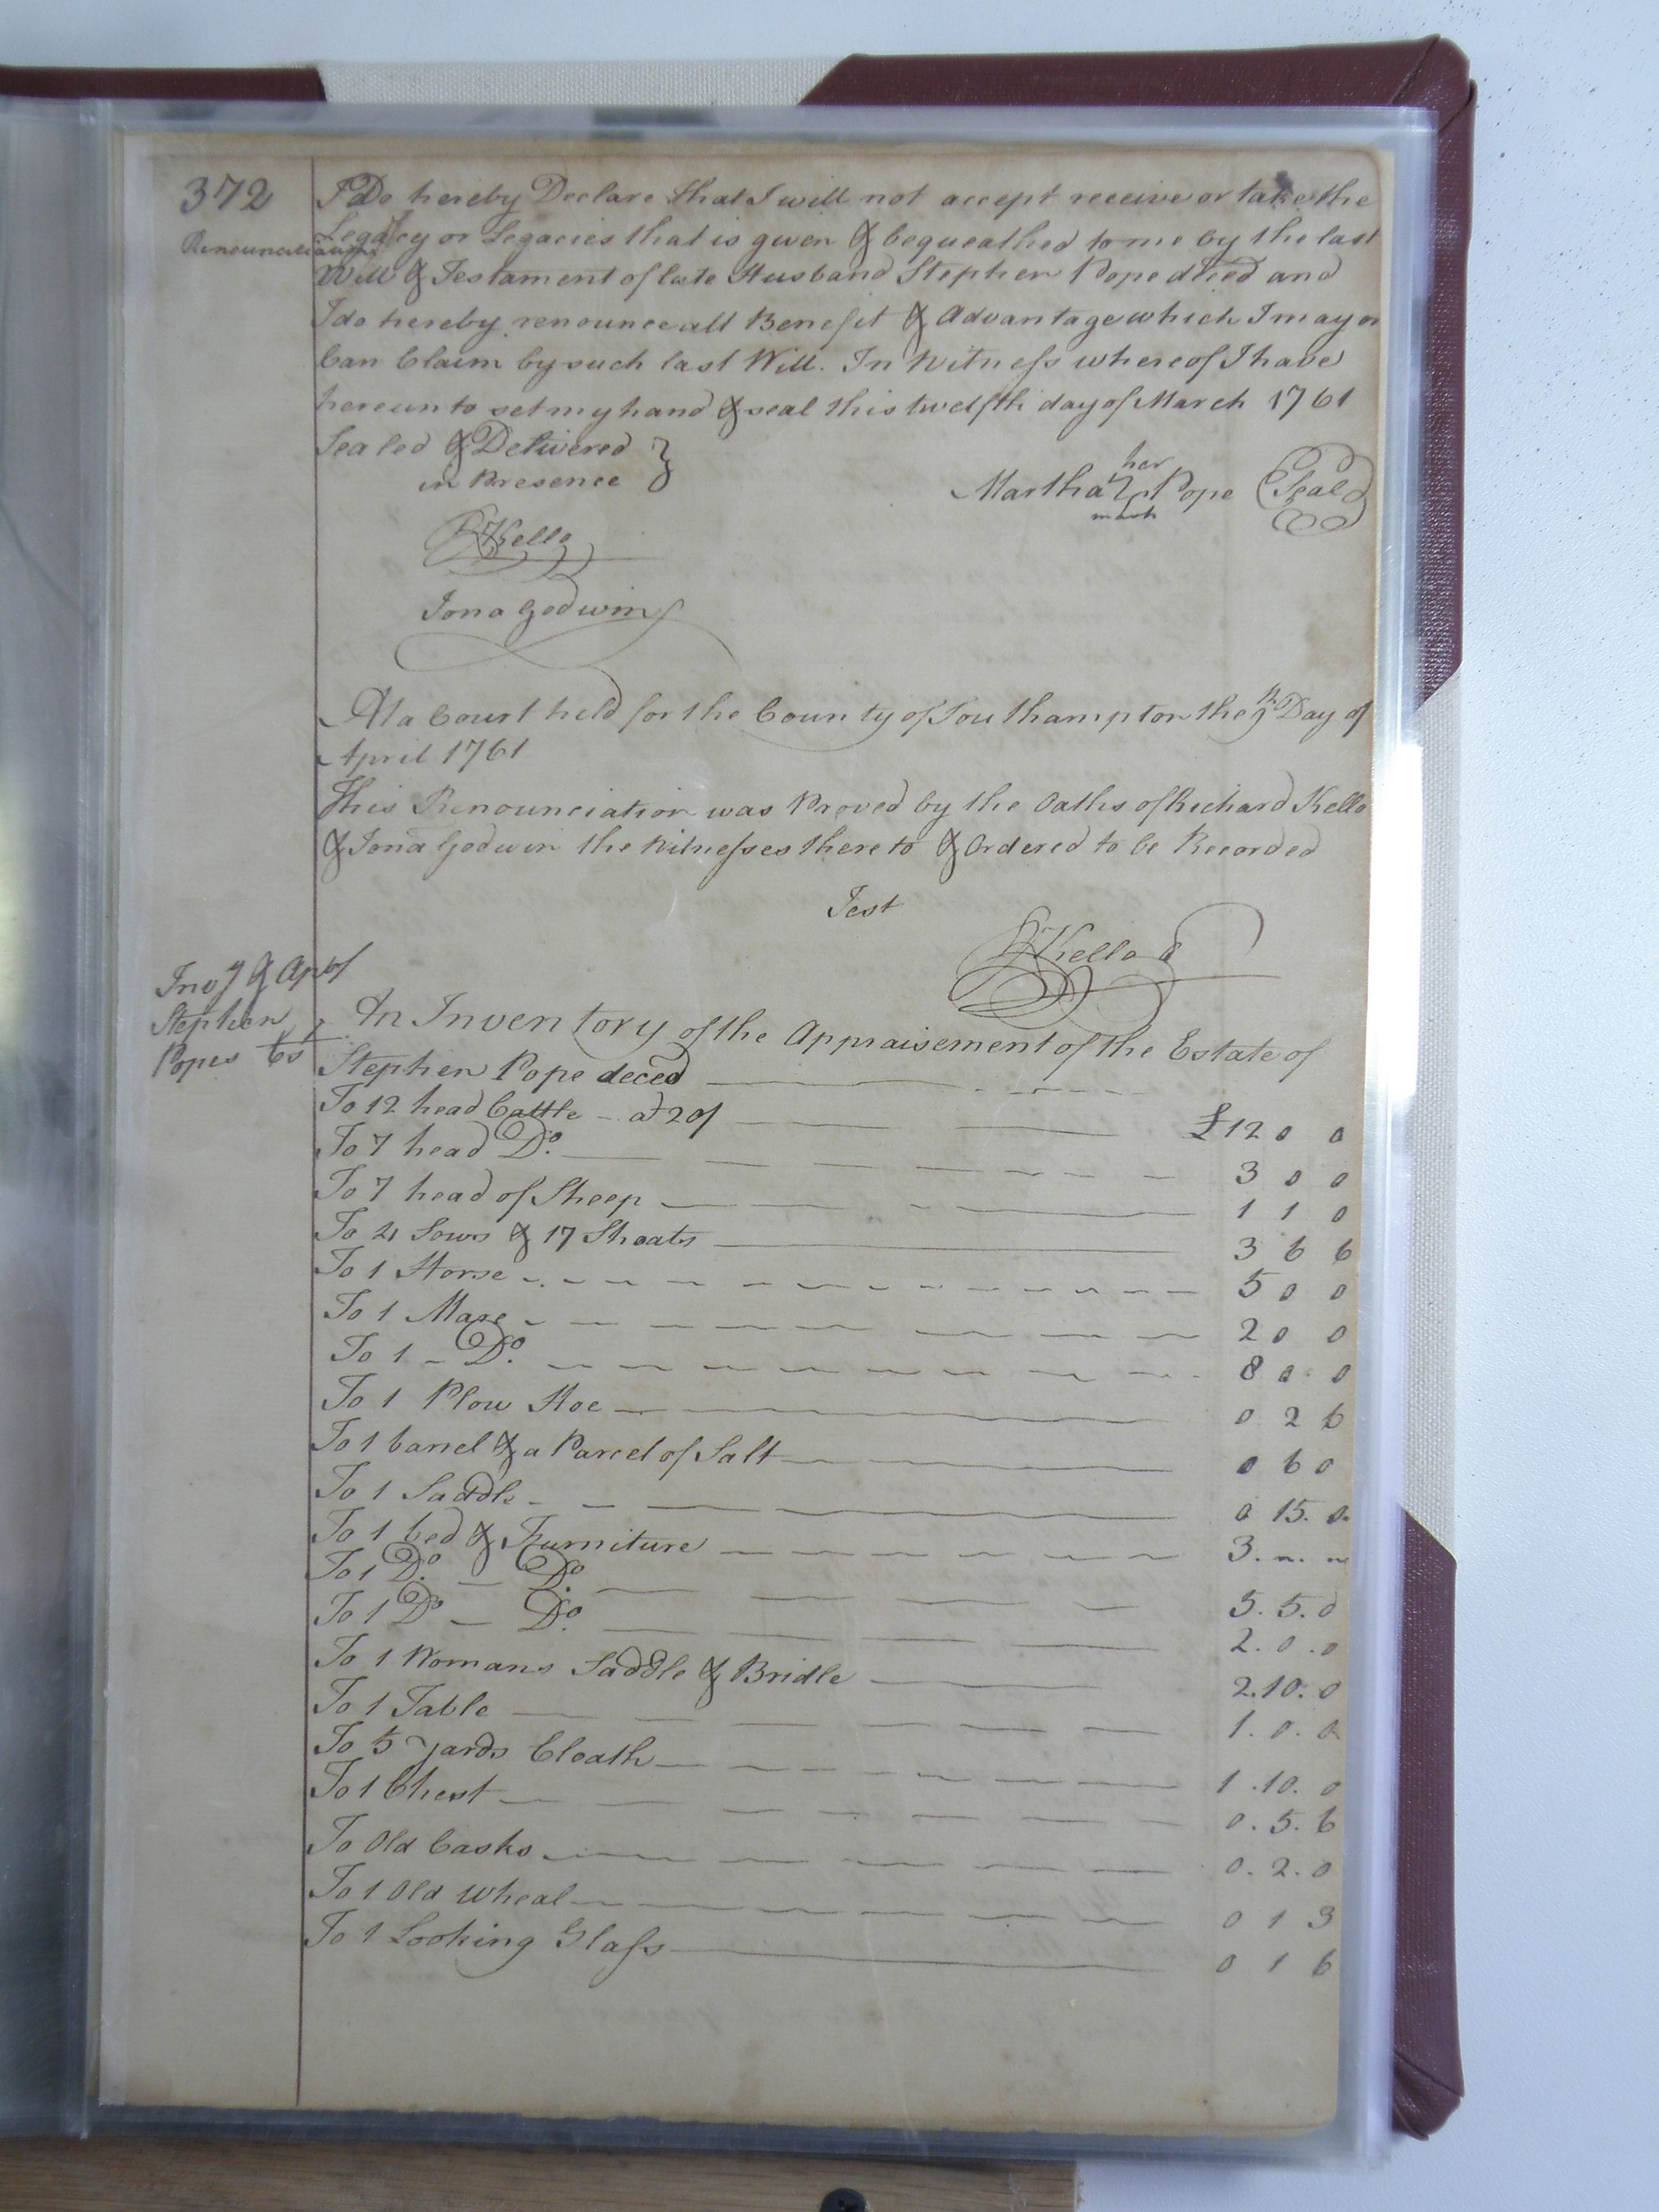 372
I Do hereby Declare that I will not accept receive or take the
Renunciation
Legacy or Legacies that is given & bequeathed to me by the last
Will & Testament of late Husband Stephen Pope deced and
I do hereby renounce all Benefit & Advantage which I may or
Can Claim by such last Will. In Witness whereof I have
hereunto set my hand & seal this twelfth day of March 1761
Sealed & Delivered
in Presence
her
Martha Pope Seal
mark
R Kello
Jona Godwin
At a Court held for the County of Southampton the 9th Day of
April 1761
This Renounciation was Proved by the Oaths of Richard Kello
& Jona Godwin the Witnesses thereto & Ordered to be Recorded
Test
R Kello
Invy & Apt of
Stephen
Popes Es
An Inventory of the Appraisement of the Estate of
Stephen Pope deced
To 12 head Cattle - at 20/ £12 0 0
To 7 head Do. 3 0 0
To 7 head of Sheep 1 1 0
To 4 Sows & 17 Shoats 3 6 6
To 1 Horse 5 0 0
To 1 Mare 2 0 0
To 1 - Do. 8 0 0
To 1 Plow Hoe 0 2 6
To 1 barrel & a Parcel of Salt 0 6 0
To 1 Saddle 0 15. 0.
To 1 bed & Furniture 3. ". "
To 1 Do. - Do. 5. 5. 0
To 1 Do - Do. 2. 0. 0
To 1 Womans Saddle & Bridle 2.10. 0
To 1 Table 1. 0. 0
To 5 yards Cloath 1.10. 0
To 1 Chest 0. 5. 6
To Old Casks 0. 2. 0
To 1 Old Wheal 0 1 3
To 1 Looking Glass 0 1 6